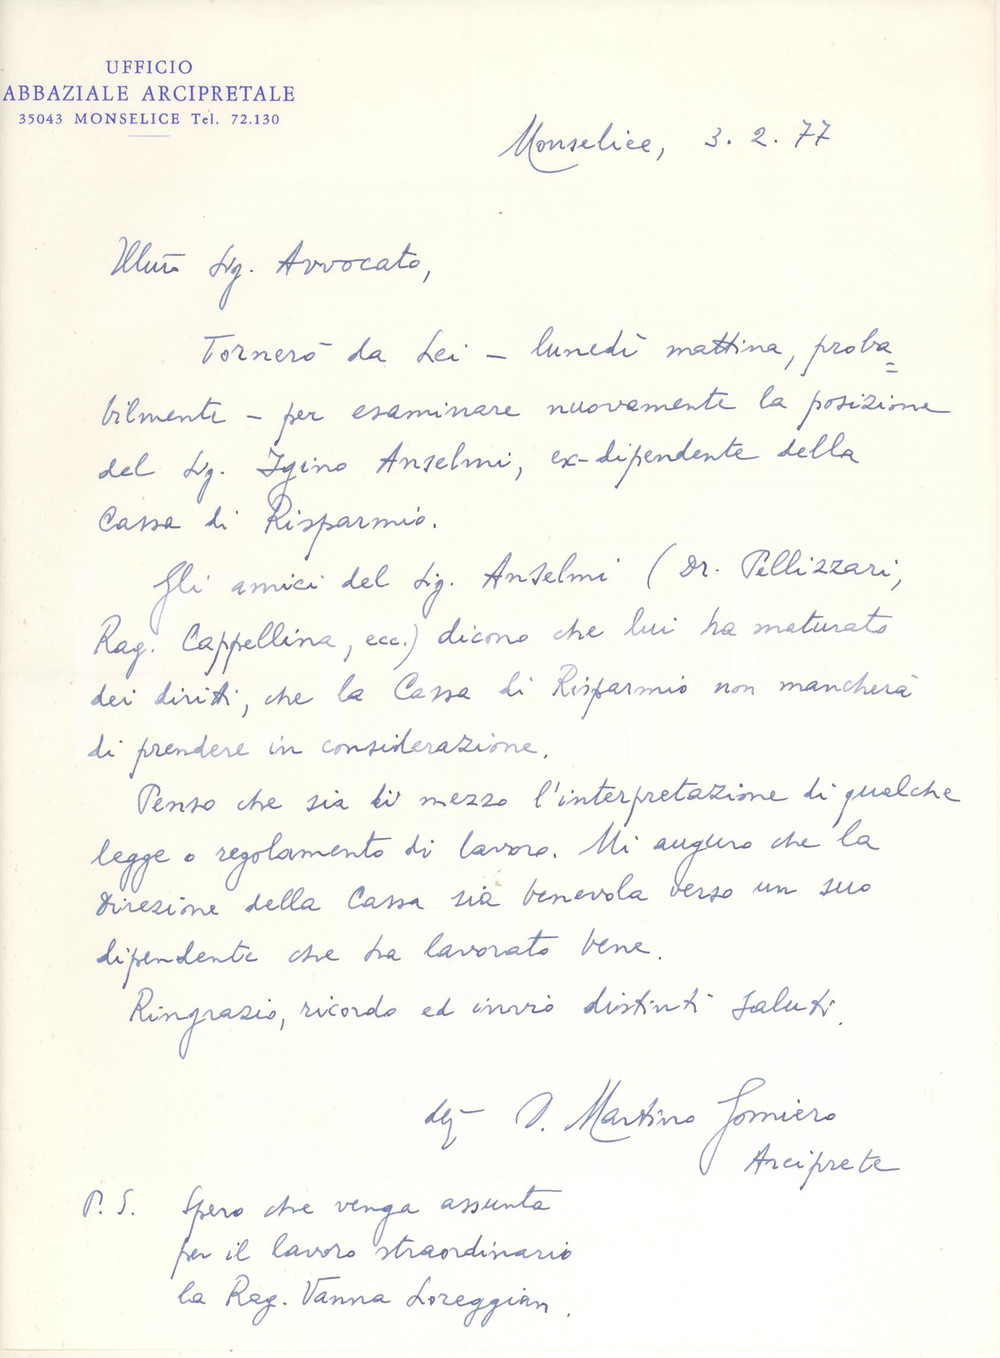 UFFICIO
ABBAZIALE ARCIPRETALE
35043 MONSELICE Tel. 72.130
Monselice, 3. 2. 77
Illmo Sig. Avvocato,
Tornerò da Lei – lunedì mattina, proba=
bilmente – per esaminare nuovamente la posizione
del Sig. Igino Anselmi, ex-dipendente della
Cassa di Risparmio.
Gli amici del Sig. Anselmi (Dr. Pellizzari,
Rag. Cappellina, ecc.) dicono che lui ha maturato
dei diritti, che la Cassa di Risparmio non mancherà
di prendere in considerazione.
Penso che sia di mezzo l'interpretazione di qualche
legge o regolamento di lavoro. Mi auguro che la
Direzione della Cassa sia benevola verso un suo
dipendente che ha lavorato bene.
Ringrazio, ricordo ed invio distinti saluti.
D. Martino Gomiero
Arciprete
P. S. Spero che venga assunta
per il lavoro straordinario
la Rag. Vanna Loreggian.